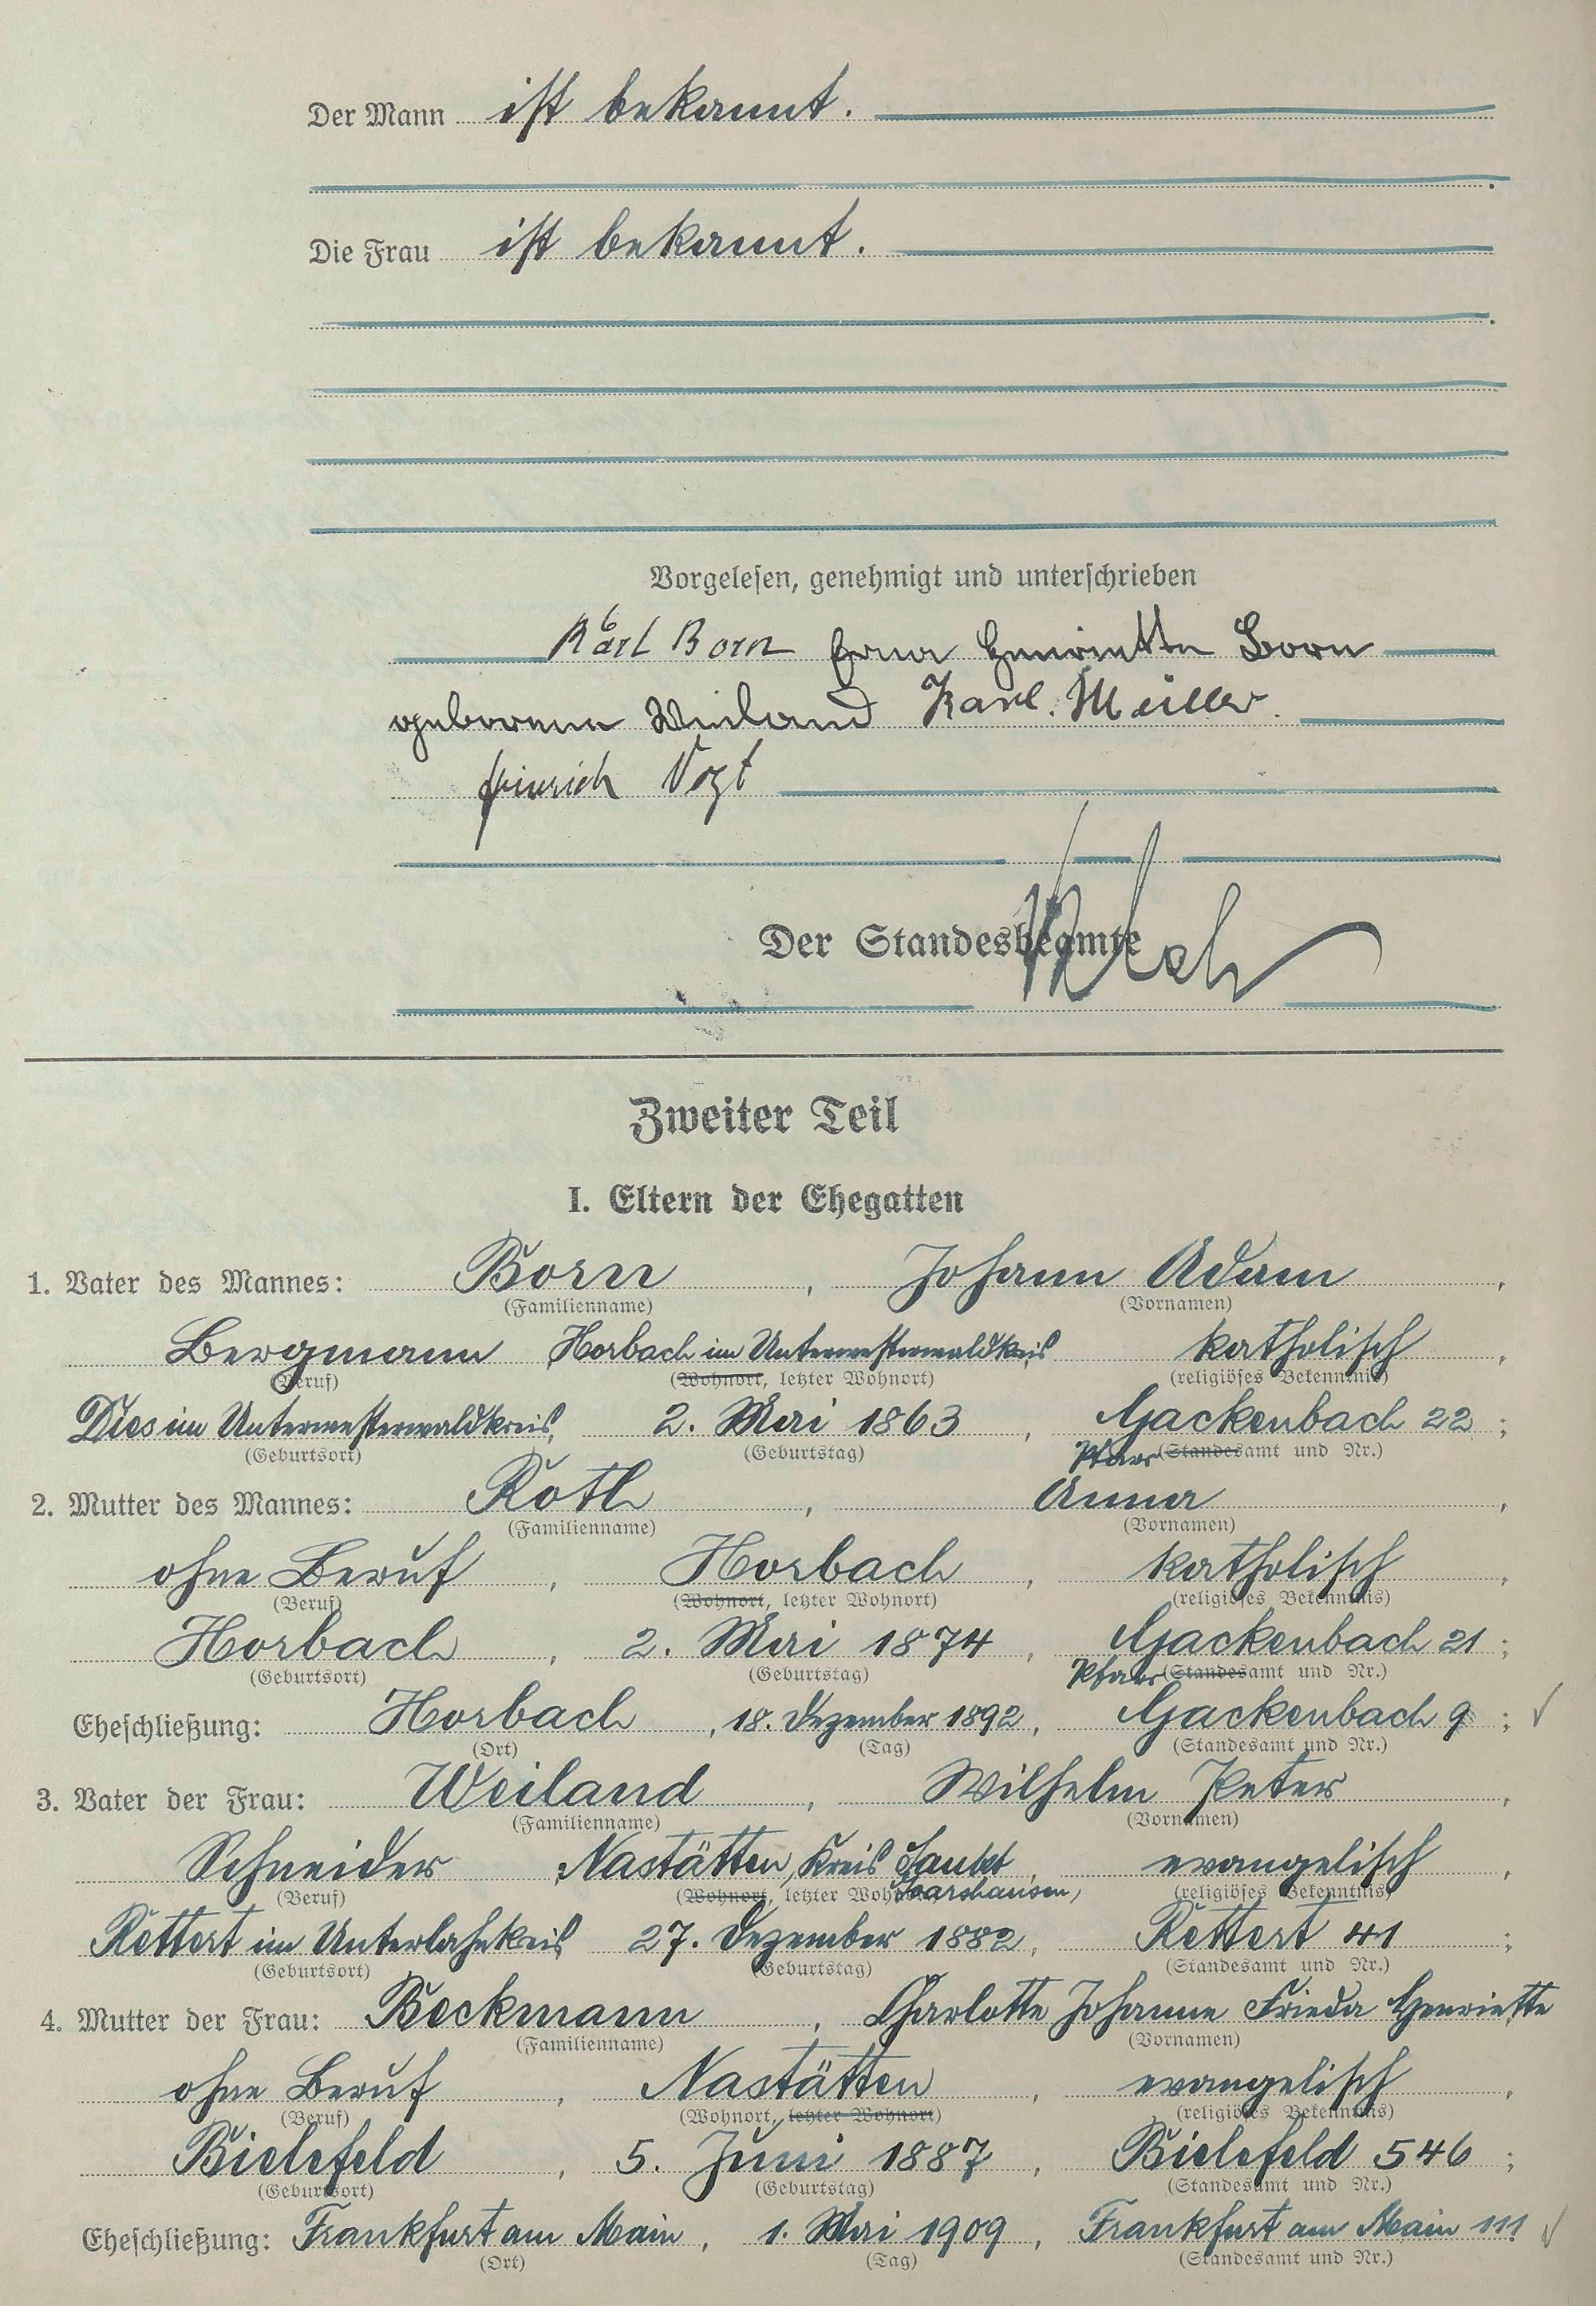 Der Mann ist bekannt.
Die Frau ist bekannt.
Vorgelesen, genehmigt und unterschrieben
Karl Born Erna Henriette Born
geborene Weiland Karl Müller.
Heinrich Vogt
Der Standesbeamte
Zweiter Teil
I. Eltern der Ehegatten
1. Vater des Mannes: Born, Johann Adam,
(Familienname) (Vornamen)
Bergmann Horbach im Unterwesterwaldkreis katholisch,
(Beruf) (Wohnort, letzter Wohnort) (religiöses Bekenntnis)
Dies im Unterwesterwaldkreis, 2. Mai 1863, Gackenbach 22;
(Geburtsort) (Geburtstag) Pfarr (Standesamt und Nr.)
2. Mutter des Mannes: Roth, Anna,
(Familienname) (Vornamen)
ohne Beruf, Horbach, katholisch,
(Beruf) (Wohnort, letzter Wohnort) (religiöses Bekenntnis)
Horbach, 2. Mai 1874, Gackenbach 21;
(Geburtsort) (Geburtstag) Pfarr (Standesamt und Nr.)
Eheschließung: Horbach, 18. Dezember 1892, Gackenbach 9;
(Ort) (Tag) (Standesamt und Nr.)
3. Vater der Frau: Weiland, Wilhelm Peter,
(Familienname) (Vornamen)
Schneider, Nastätten, Kreis Sankt, evangelisch,
(Beruf) (Wohnort, letzter Wohnort) Goarshausen, (religiöses Bekenntnis)
Rettert im Unterlahnkreis 27. Dezember 1882, Rettert 41;
(Geburtsort) (Geburtstag) (Standesamt und Nr.)
4. Mutter der Frau: Beckmann, Charlotte Johanne Frieda Henriette
(Familienname) (Vornamen)
ohne Beruf, Nastätten, evangelisch,
(Beruf) (Wohnort, letzter Wohnort) (religiöses Bekenntnis)
Bielefeld, 5. Juni 1887, Bielefeld 546;
(Geburtsort) (Geburtstag) (Standesamt und Nr.)
Eheschließung: Frankfurt am Main, 1. Mai 1909, Frankfurt am Main
(Ort) (Tag) (Standesamt und Nr.)